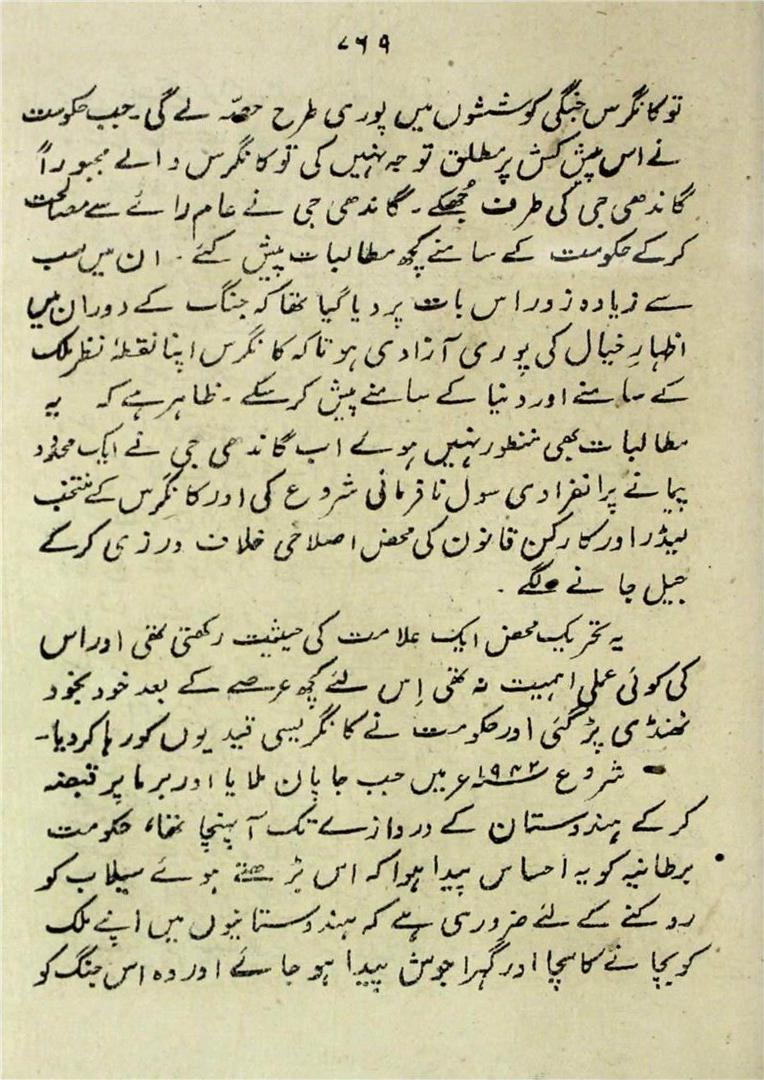 ۷۶۹
تو کانگرس جنگی کوششوں میں پوری طرح حصّہ لے گی۔ جب حکومت
نے اس پیش کش پر مطلق توجہ نہیں کی تو کانگرس والے مجبوراً
گاندھی جی کی طرف جُھکے۔ گاندھی جی نے عام رائے سے مصالحت
کر کے حکومت کے سامنے کچھ مطالبات پیش کئے۔ ان میں سب
سے زیادہ زور اس بات پر دیا گیا تھا کہ جنگ کے دوران میں
اظہارِ خیال کی پوری آزادی ہو تاکہ کانگرس اپنا نقطۂ نظر ملک
کے سامنے اور دنیا کے سامنے پیش کر سکے۔ ظاہر ہے کہ یہ
مطالبات بھی منظور نہیں ہوئے اب گاندھی جی نے ایک محدود
پیمانے پر انفرادی سول نافرمانی شروع کی اور کانگرس کے منتخب
لیڈر اور کارکن قانون کی محض اصلاحی خلاف ورزی کر کے
جیل جانے لگے۔
یہ تحریک محض ایک علامت کی حیثیت رکھتی تھی اور اس
کی کوئی عملی اہمیت نہ تھی اِس لئے کچھ عرصے کے بعد خود بخود
ٹھنڈی پڑ گئی اور حکومت نے کانگریسی قیدیوں کو رہا کر دیا۔
شروع ۱۹۴۲ء میں جب جاپان ملایا اور برما پر قبضہ
کر کے ہندوستان کے دروازے تک آ پہنچا تھا، حکومت
برطانیہ کو یہ احساس پیدا ہوا کہ اس بڑھتے ہوئے سیلاب کو
روکنے کے لئے ضروری ہے کہ ہندوستانیوں میں اپنے ملک
کو بچانے کا سچا اور گہرا جوش پیدا ہو جائے اور وہ اس جنگ کو